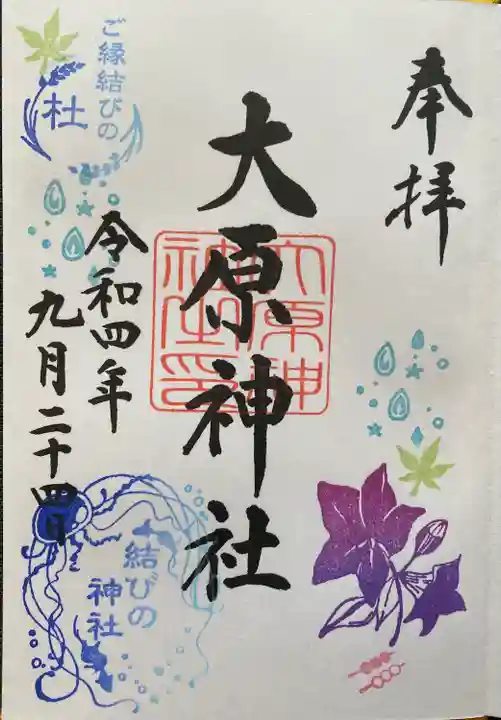 奉拝
大原神社
大原神社印
令和四年
九月二十四日
ご縁結びの
杜
結びの
神社